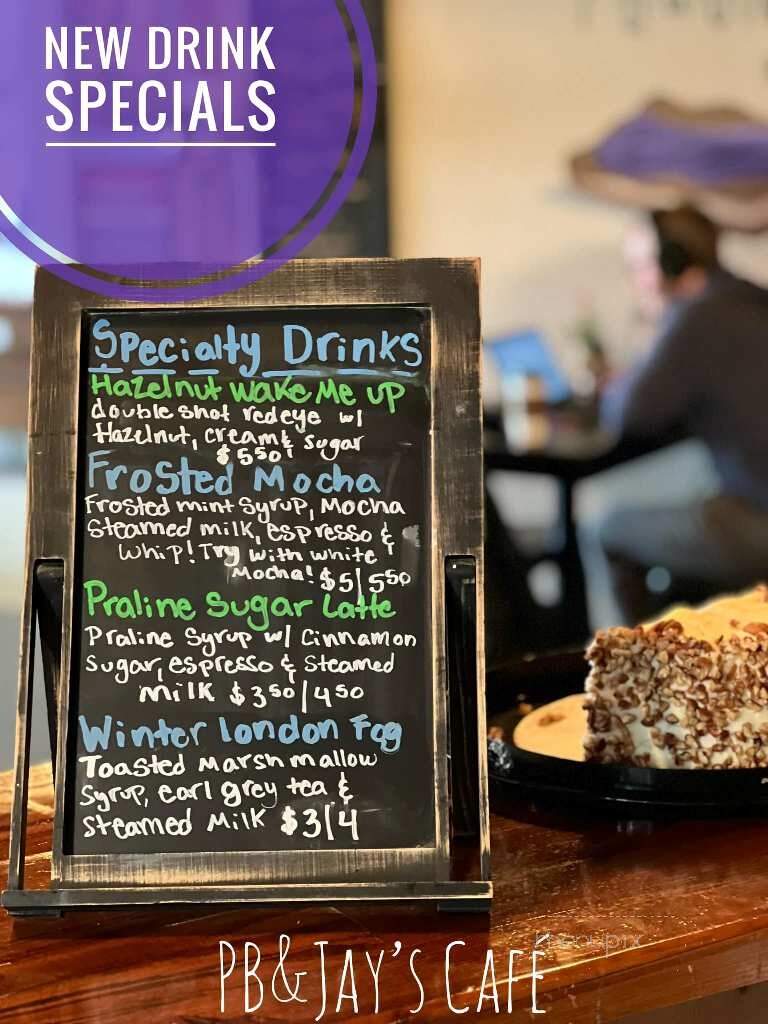 NEW DRINK
SPECIALS
Specialty Drinks
Hazelnut wake Me up
double shot redeye w/
Hazelnut, cream & sugar
$5.50!
Frosted Mocha
Frosted mint syrup, Mocha
Steamed milk, espresso &
Whip! Try with white
Mocha! $5/5.50
Praline Sugar Latte
Praline Syrup w/ Cinnamon
Sugar, espresso & Steamed
Milk $3.50/4.50
Winter london Fog
Toasted Marshmallow
Syrup, earl grey tea &
Steamed Milk $3/4
PB&JAY'S CAFÉ